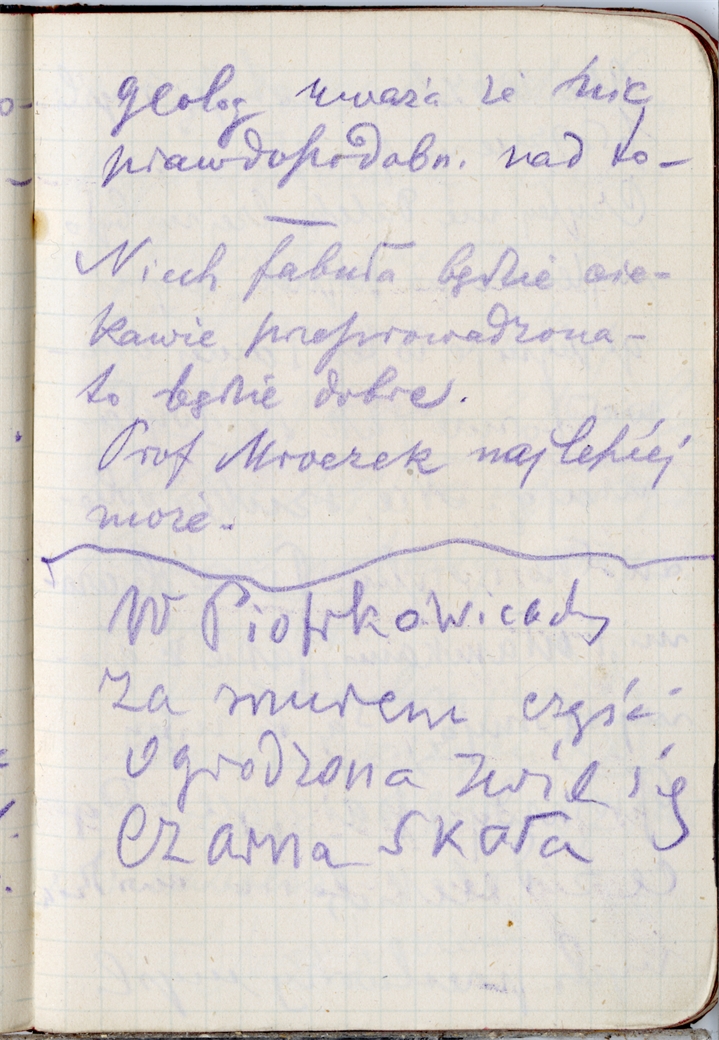 geolog uważa że nic
prawdopodobn. nad to-
Niech fabuła będzie cie-
kawie przeprowadzona-
to będzie dobrze.
Prof Mroczek najlepiej
może.
W Piotrkowicach
za murem część
ogrodzona zwie się
Czarna Skała